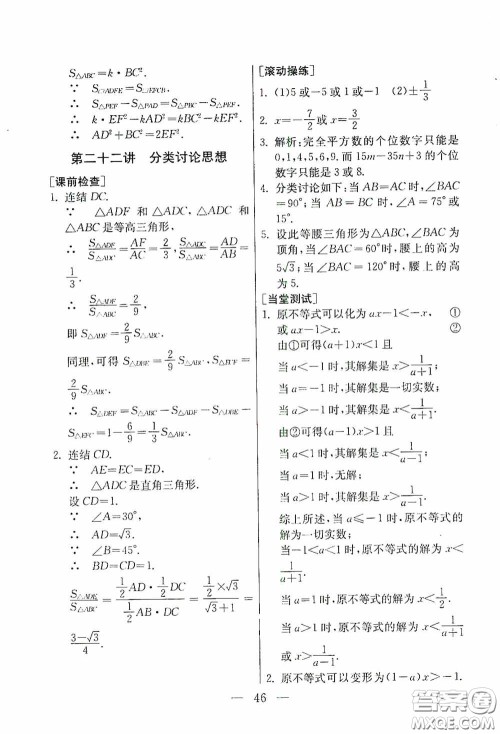 S△ABC=k·BC².
∵ S□ADFE=S□EFCB.
∴ S△PEF-S△PAD=S△PBC-S△PEF.
∴ k·EF²-kAD²=kBC²-kEF².
∴ AD²+BC²=2EF².
第二十二讲 分类讨论思想
[课前检查]
1. 连结 DC.
∵ △ADF 和 △ADC, △ADC 和
△ABC 是等高三角形,
∴ S△ADF/S△ADC=AF/AC=2/3, S△ADC/S△ABC=AD/AB=
1/3.
∴ S△ADF/S△ABC=2/9,
即 S△ADF=2/9 S△ABC.
同理,可得 S△DBE=2/9 S△ABC, S△ECF=
2/9 S△ABC.
∴ S△DEF=S△ABC-S△ADF-S△DBE-
S△EFC=1-6/9=1/3 S△ABC.
2. 连结 CD.
∵ AE=EC=ED,
∴ △ADC 是直角三角形.
设 CD=1.
∵ ∠A=30°,
∴ AD=√3.
∵ ∠B=45°.
∴ BD=CD=1.
S△ADE/S△ABC=(1/2 AD·1/2 DC)/(1/2 AB·DC)=(1/2×√3)/(√3+1)=
(3-√3)/4.
[滚动操练]
1. (1)5 或-5 或 1 或-1 (2)±1/3
2. x=-7/2 或 x=3/2
3. 解析:完全平方数的个位数字只能是
0,1,4,5,6,9. 而 15m-35n+3 的个位
数字只能是 3 或 8.
4. 分类讨论如下:当 AB=AC 时,∠BAC
=90°;当 AB=BC 时,∠A=75° 或
15°.
5. 设此等腰三角形为△ABC,∠BAC 为
顶角,当∠BAC=60°时,腰上的高为
5√3;当∠BAC=120°时,腰上的高为
5.
[当堂测试]
1. 原不等式可以化为 ax-1<-x, ①
或 ax-1>x. ②
由①可得(a+1)x<1 且
当 a<-1 时,其解集是 x>1/(a+1).
当 a=-1 时,其解集是一切实数;
当 a>-1 时,其解集是 x<1/(a+1).
由②可得(a-1)x>1 且
当 a<1 时,其解集是 x<1/(a-1).
当 a=1 时,无解;
当 a>1 时,其解集是 x>1/(a-1).
综上所述,当 a≤-1 时,原不等式的
解为一切实数;
当-1<a<1 时,原不等式的解为 x<
1/(a+1).
当 a=1 时,原不等式的解为 x<1/2.
当 a>1 时,原不等式的解为 x<1/(a+1)
或 x>1/(a-1).
2. 原不等式可以变形为(1-a)x>-1.
46
答案圈
MXQE.COM